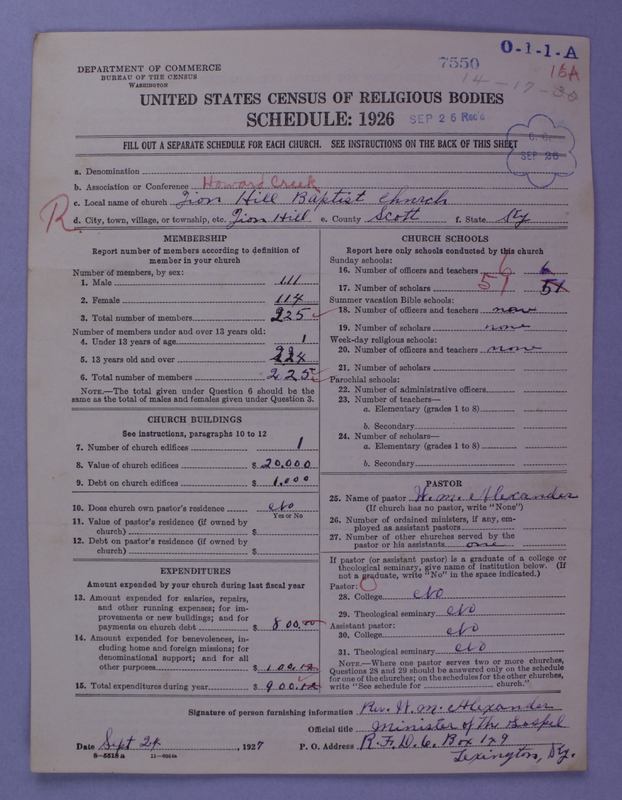 O-1-1-A
DEPARTMENT OF COMMERCE
BUREAU OF THE CENSUS
WASHINGTON
7550
16A
UNITED STATES CENSUS OF RELIGIOUS BODIES
SCHEDULE: 1926
SEP 26 Rec'd
FILL OUT A SEPARATE SCHEDULE FOR EACH CHURCH. SEE INSTRUCTIONS ON THE BACK OF THIS SHEET
SEP 26
a. Denomination
b. Association or Conference Howard Creek
c. Local name of church Zion Hill Baptist church
R.
d. City, town, village, or township, etc. Zion Hill e. County Scott f. State Ky
MEMBERSHIP
Report number of members according to definition of
member in your church
Number of members, by sex:
1. Male 111
2. Female 114
3. Total number of members 225
Number of members under and over 13 years old:
4. Under 13 years of age 1
5. 13 years old and over 224
6. Total number of members 225
NOTE.—The total given under Question 6 should be
same as the total of males and females given under Question 3.
CHURCH BUILDINGS
See instructions, paragraphs 10 to 12
7. Number of church edifices 1
8. Value of church edifices $ 20,000
9. Debt on church edifices $ 1,000
10. Does church own pastor's residence No
Yes or No
11. Value of pastor's residence (if owned by
church) $
12. Debt on pastor's residence (if owned by
church) $
EXPENDITURES
Amount expended by your church during last fiscal year
13. Amount expended for salaries, repairs,
and other running expenses; for im-
provements or new buildings; and for
payments on church debt $ 800.00
14. Amount expended for benevolences, in-
cluding home and foreign missions; for
denominational support; and for all
other purposes $ 100.12
15. Total expenditures during year $ 900.12
CHURCH SCHOOLS
Report here only schools conducted by this church
Sunday schools:
16. Number of officers and teachers 6 6
17. Number of scholars 51 51
Summer vacation Bible schools:
18. Number of officers and teachers none
19. Number of scholars none
Week-day religious schools:
20. Number of officers and teachers none
21. Number of scholars
Parochial schools:
22. Number of administrative officers
23. Number of teachers—
a. Elementary (grades 1 to 8)
b. Secondary
24. Number of scholars—
a. Elementary (grades 1 to 8)
b. Secondary
PASTOR
25. Name of pastor W. M. Alexander
(If church has no pastor, write "None")
26. Number of ordained ministers, if any, em-
ployed as assistant pastors
27. Number of other churches served by the
pastor or his assistants one
If pastor (or assistant pastor) is a graduate of a college or
theological seminary, give name of institution below. (If
not a graduate, write "No" in the space indicated.)
Pastor: O
28. College No
29. Theological seminary No
Assistant pastor:
30. College No
31. Theological seminary No
NOTE.—Where one pastor serves two or more churches,
Questions 28 and 29 should be answered only on the schedule
for one of the churches; on the schedules for the other churches,
write "See schedule for church."
Signature of person furnishing information Rev. W. M. Alexander
Official title Minister of the Gospel
Date Sept 24, 1927 P. O. Address R. F. D. 6. Box 129
Lexington, Ky.
8—5518 a